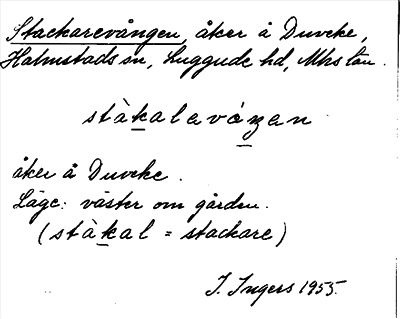 Stackarevången, åker å Duveke,
Halmstads sn, Luggude hd, Mhs län.
stàkalavóŋen
åker å Duveke.
Läge: väster om gården.
(stàkal = stackare)
I. Ingers 1955.